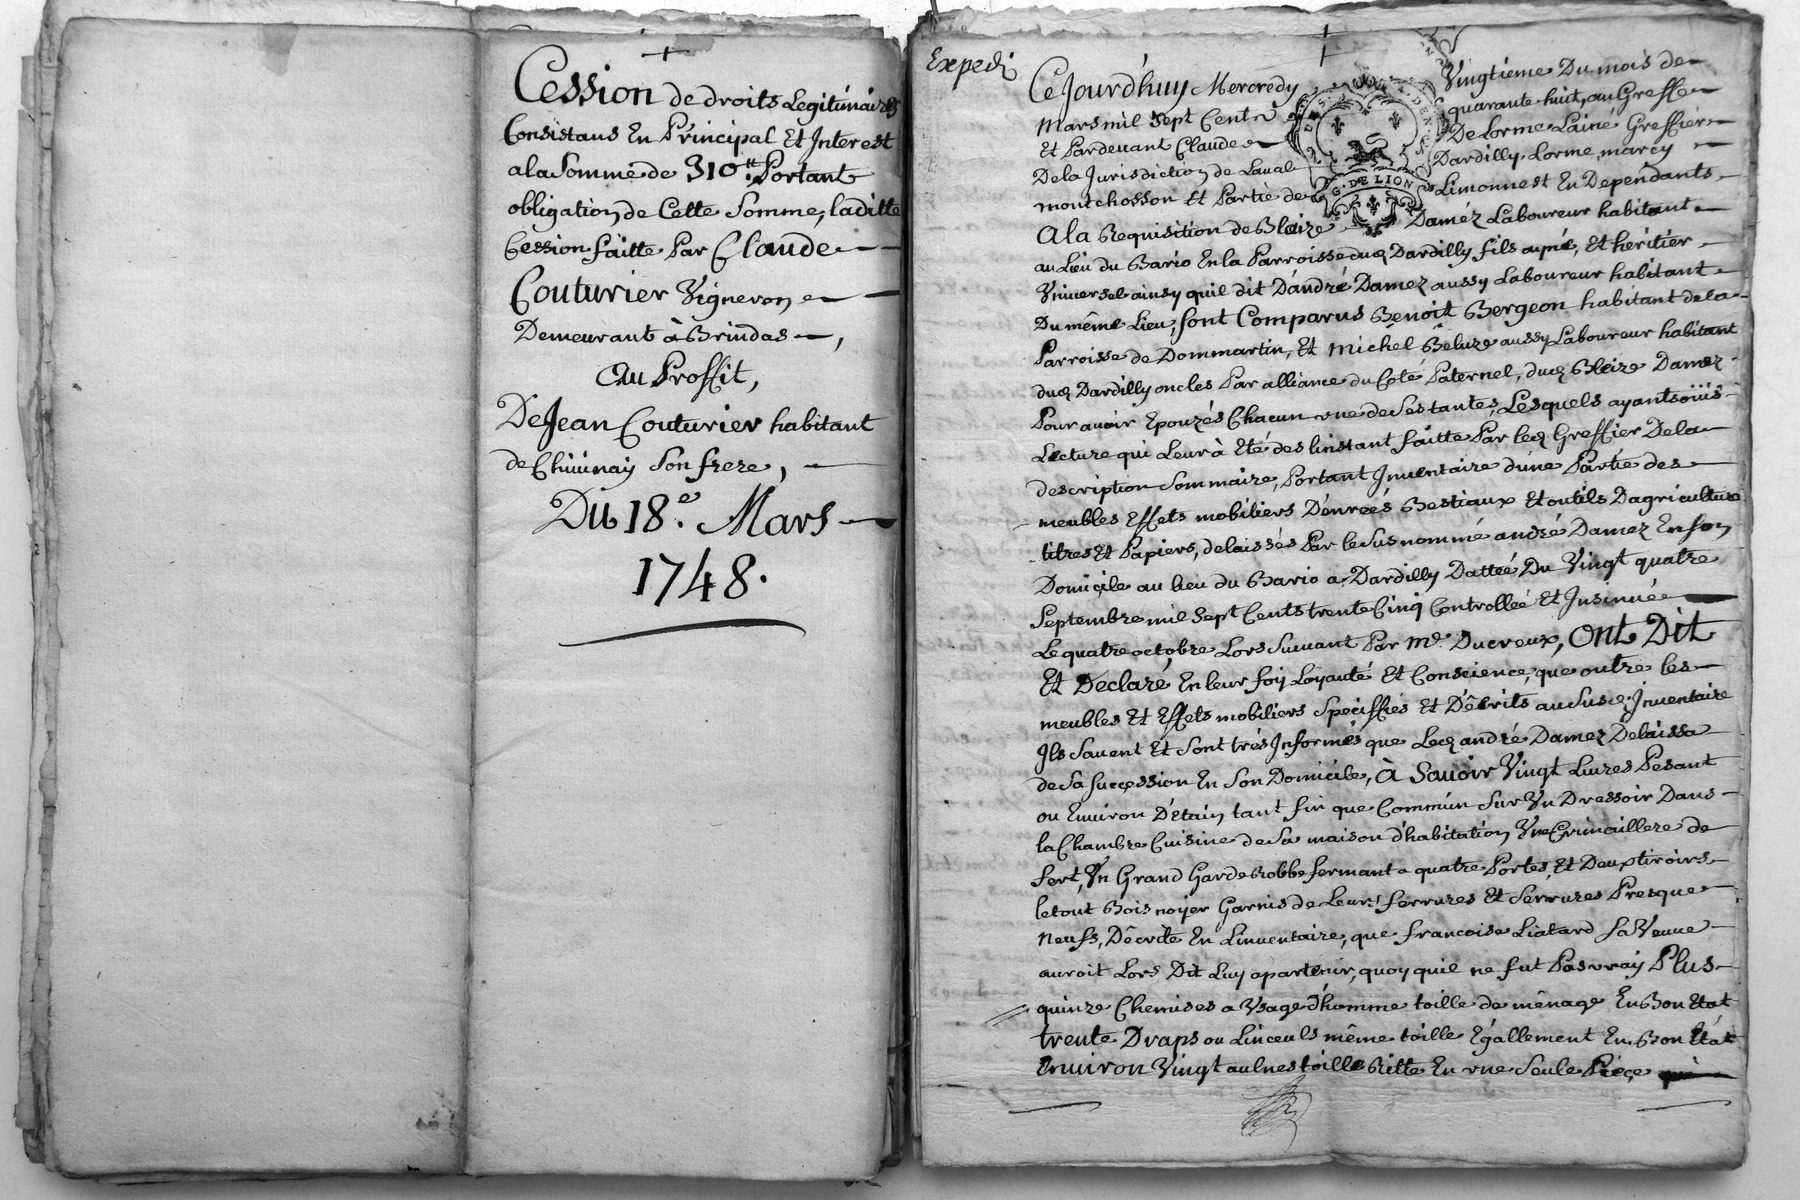 Cession de droits Legitimaires
Consistans En Principal Et Interest
ala Somme de 310.ᵗᵗ Portant
obligation de Cette Somme, laditte
Cession faitte Par Claude
Couturier Vigneron
Demeurant à Brindas,
Au Proffit,
De Jean Couturier habitant
de son frere,
Du 18.ᵉ Mars
1748.
Expedi
Ce Jourd'huy Mercredy Vingtieme Du mois de
Mars mil Sept Cent quarante huit, au Greffe
Et Pardevant Claude De Lorme Lainé Greffier
De la Jurisdiction de Laval Dardilly, Lorme, marcy
montchosson Et Partie de Limonnest En Dependants
G. DE LION
A la Requisition de Bleize Daméz Laboureur habitant
au Lieu du Bario En la Parroisse dud. Dardilly fils ayné, Et héritier
Vniversel ainsy quil dit D'andré Damez aussy Laboureur habitant
Du même Lieu, font Comparus Benoit Bergeon habitant de la
Parroisse de Dommartin, Et Michel Beluze aussy Laboureur habitant
dud. Dardilly oncles Par alliance du Cote Paternel, dud. Bleize Damez
Pour avoir Epouzés Chacun vne de Ses tantes, Lesquels ayants oüis
Lecture qui Leur à Eté des Linstant faitte Par led. Greffier De la
description Sommaire, Portant Inventaire d'une Partie des
meubles Effets mobiliers Dénrées Bestiaux Et outils D'agriculture
titres Et Papiers, delaissés Par le Susnommé andré Damez En son
Domicile au lieu du Bario a Dardilly Dattéé Du Vingt quatre
Septembre mil Sept Cents trente Cinq Controlleé Et Insinuée
Le quatre octobre Lors Suivant Par Mᵉ. Ducreux, Ont Dit
Et Declaré, En leur foy Loyauté Et Conscience, que outre les
meubles Et Effets mobiliers Speciffiés Et Décrits au Susd. Inventaire
Ils Savent Et Sont très Informés que Led. andré Damez Delaissa
de Sa Succession En Son Domicile, À Savoir Vingt Livres Pesant
ou Environ D'étain tant fin que Commun Sur Vn Dressoir Dans
la Chambre Cuisine de Sa maison d'habitation, Vne Crimaillere de
fert, Vn Grand Garde Robbe fermant a quatre Portes, Et Deux tiroirs
le tout Bois noyer Garnis de Leurs ferrures Et Serrures Presque
Neufs, Décrite En Linventaire, que francoise Liatard Sa Veuve
auroit Lors Dit Luy apartenir, quoy quil ne fut Pas vray Plus
quinze Chemises a Vsage D'homme toille de ménage En Bon Etat
trente Draps ou Linceuls même toille Egallement En Bon Etat
Environ Vingt aulnes toille Ritte En vne Seule Pièçe